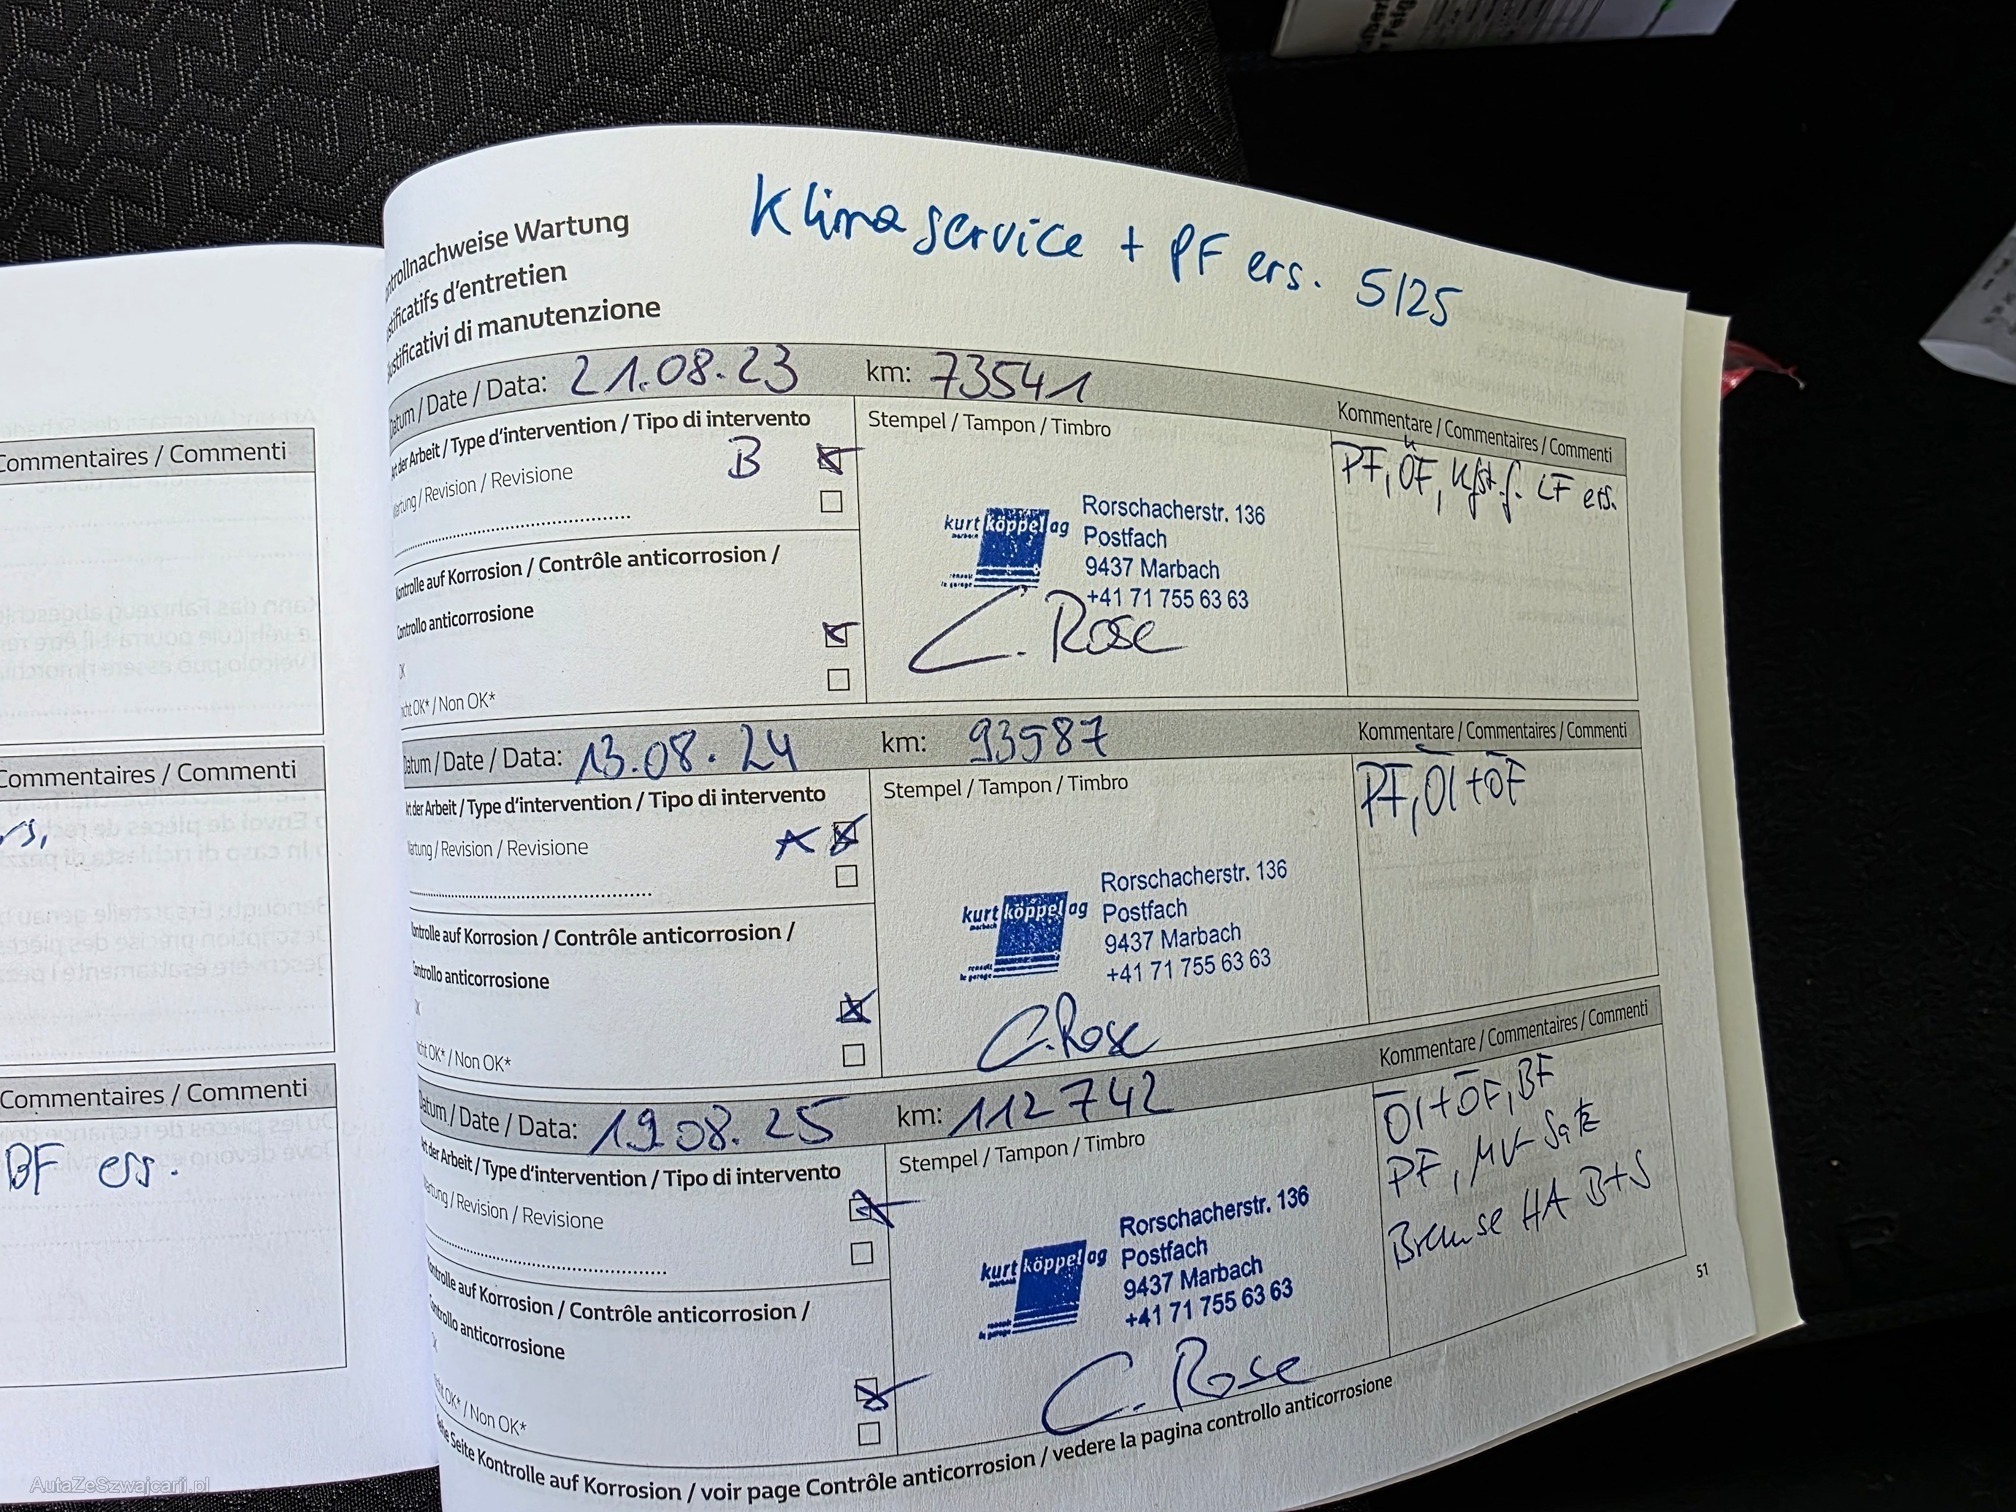 Commentaires / Commenti
Commentaires / Commenti
rs,
Commentaires / Commenti
BF ers.
Klimaservice + PF ers. 5/25
ntrollnachweise Wartung
stificatifs d'entretien
ustificativi di manutenzione
Datum / Date / Data: 21.08.23 km: 73541
Art der Arbeit / Type d'intervention / Tipo di intervento
Wartung / Revision / Revisione B
Stempel / Tampon / Timbro
kurt köppel ag
marbach
Rorschacherstr. 136
Postfach
9437 Marbach
+41 71 755 63 63
C. Rose
Kommentare / Commentaires / Commenti
PF, ÖF, Kfst.f. LF ers.
Kontrolle auf Korrosion / Contrôle anticorrosion /
Controllo anticorrosione
OK
nicht OK* / Non OK*
Datum / Date / Data: 13.08.24 km: 93587
Art der Arbeit / Type d'intervention / Tipo di intervento
Wartung / Revision / Revisione A
Stempel / Tampon / Timbro
kurt köppel ag
marbach
renault
le garage
Rorschacherstr. 136
Postfach
9437 Marbach
+41 71 755 63 63
C. Rose
Kommentare / Commentaires / Commenti
PF, Öl + ÖF
Kontrolle auf Korrosion / Contrôle anticorrosion /
Controllo anticorrosione
OK
nicht OK* / Non OK*
Datum / Date / Data: 19.08.25 km: 112742
Art der Arbeit / Type d'intervention / Tipo di intervento
Wartung / Revision / Revisione
Stempel / Tampon / Timbro
kurt köppel ag
Rorschacherstr. 136
Postfach
9437 Marbach
+41 71 755 63 63
C. Rose
Kommentare / Commentaires / Commenti
Öl + ÖF, BF
PF, MV Satz
Bremse HA B+S
Kontrolle auf Korrosion / Contrôle anticorrosion /
Controllo anticorrosione
nicht OK* / Non OK*
Siehe Seite Kontrolle auf Korrosion / voir page Contrôle anticorrosion / vedere la pagina controllo anticorrosione
51
AutaZeSzwajcarii.pl